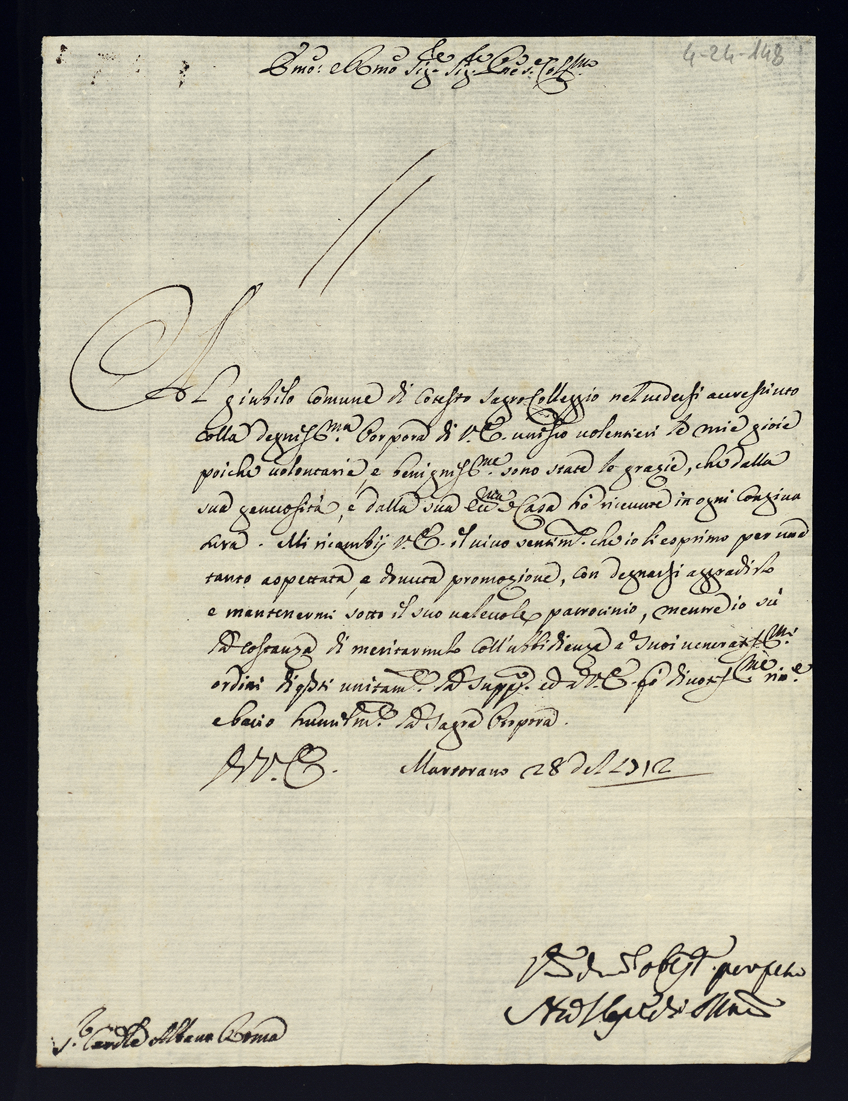 Emo: e Rmo Sig.re Sig.re Pne e Col.mo
4-24-148
Al giubilo comune di cotesto sagro Colleggio nel vedersi accresciuto
colla degniss.ma Porpora di V. E. unisco volentieri le mie gioie
poiche volontarie, e benigniss.me sono state le grazie, che dalla
sua generosità, e dalla sua Ecc.ma Casa hò ricevute in ogni congiun
tura. Mi ricambij V. E. il vivo sentim.to che io li esprimo per una
tanto aspettata, e dovuta promozione, con degnarsi aggradirlo
e mantenermi sotto il suo valevole patrocinio, mentre io sù
la costanza di meritarmelo coll'ubbidienza a suoi venerat.mi
ordini unitam.te la supp.co ed a V. E. fò divotiss.me riv.e
e bacio humilm.te la sagra Porpora.
Di V. E. Martorano 28 del 1712
obl.mo perpetuo
S.r Card.le Albani Roma